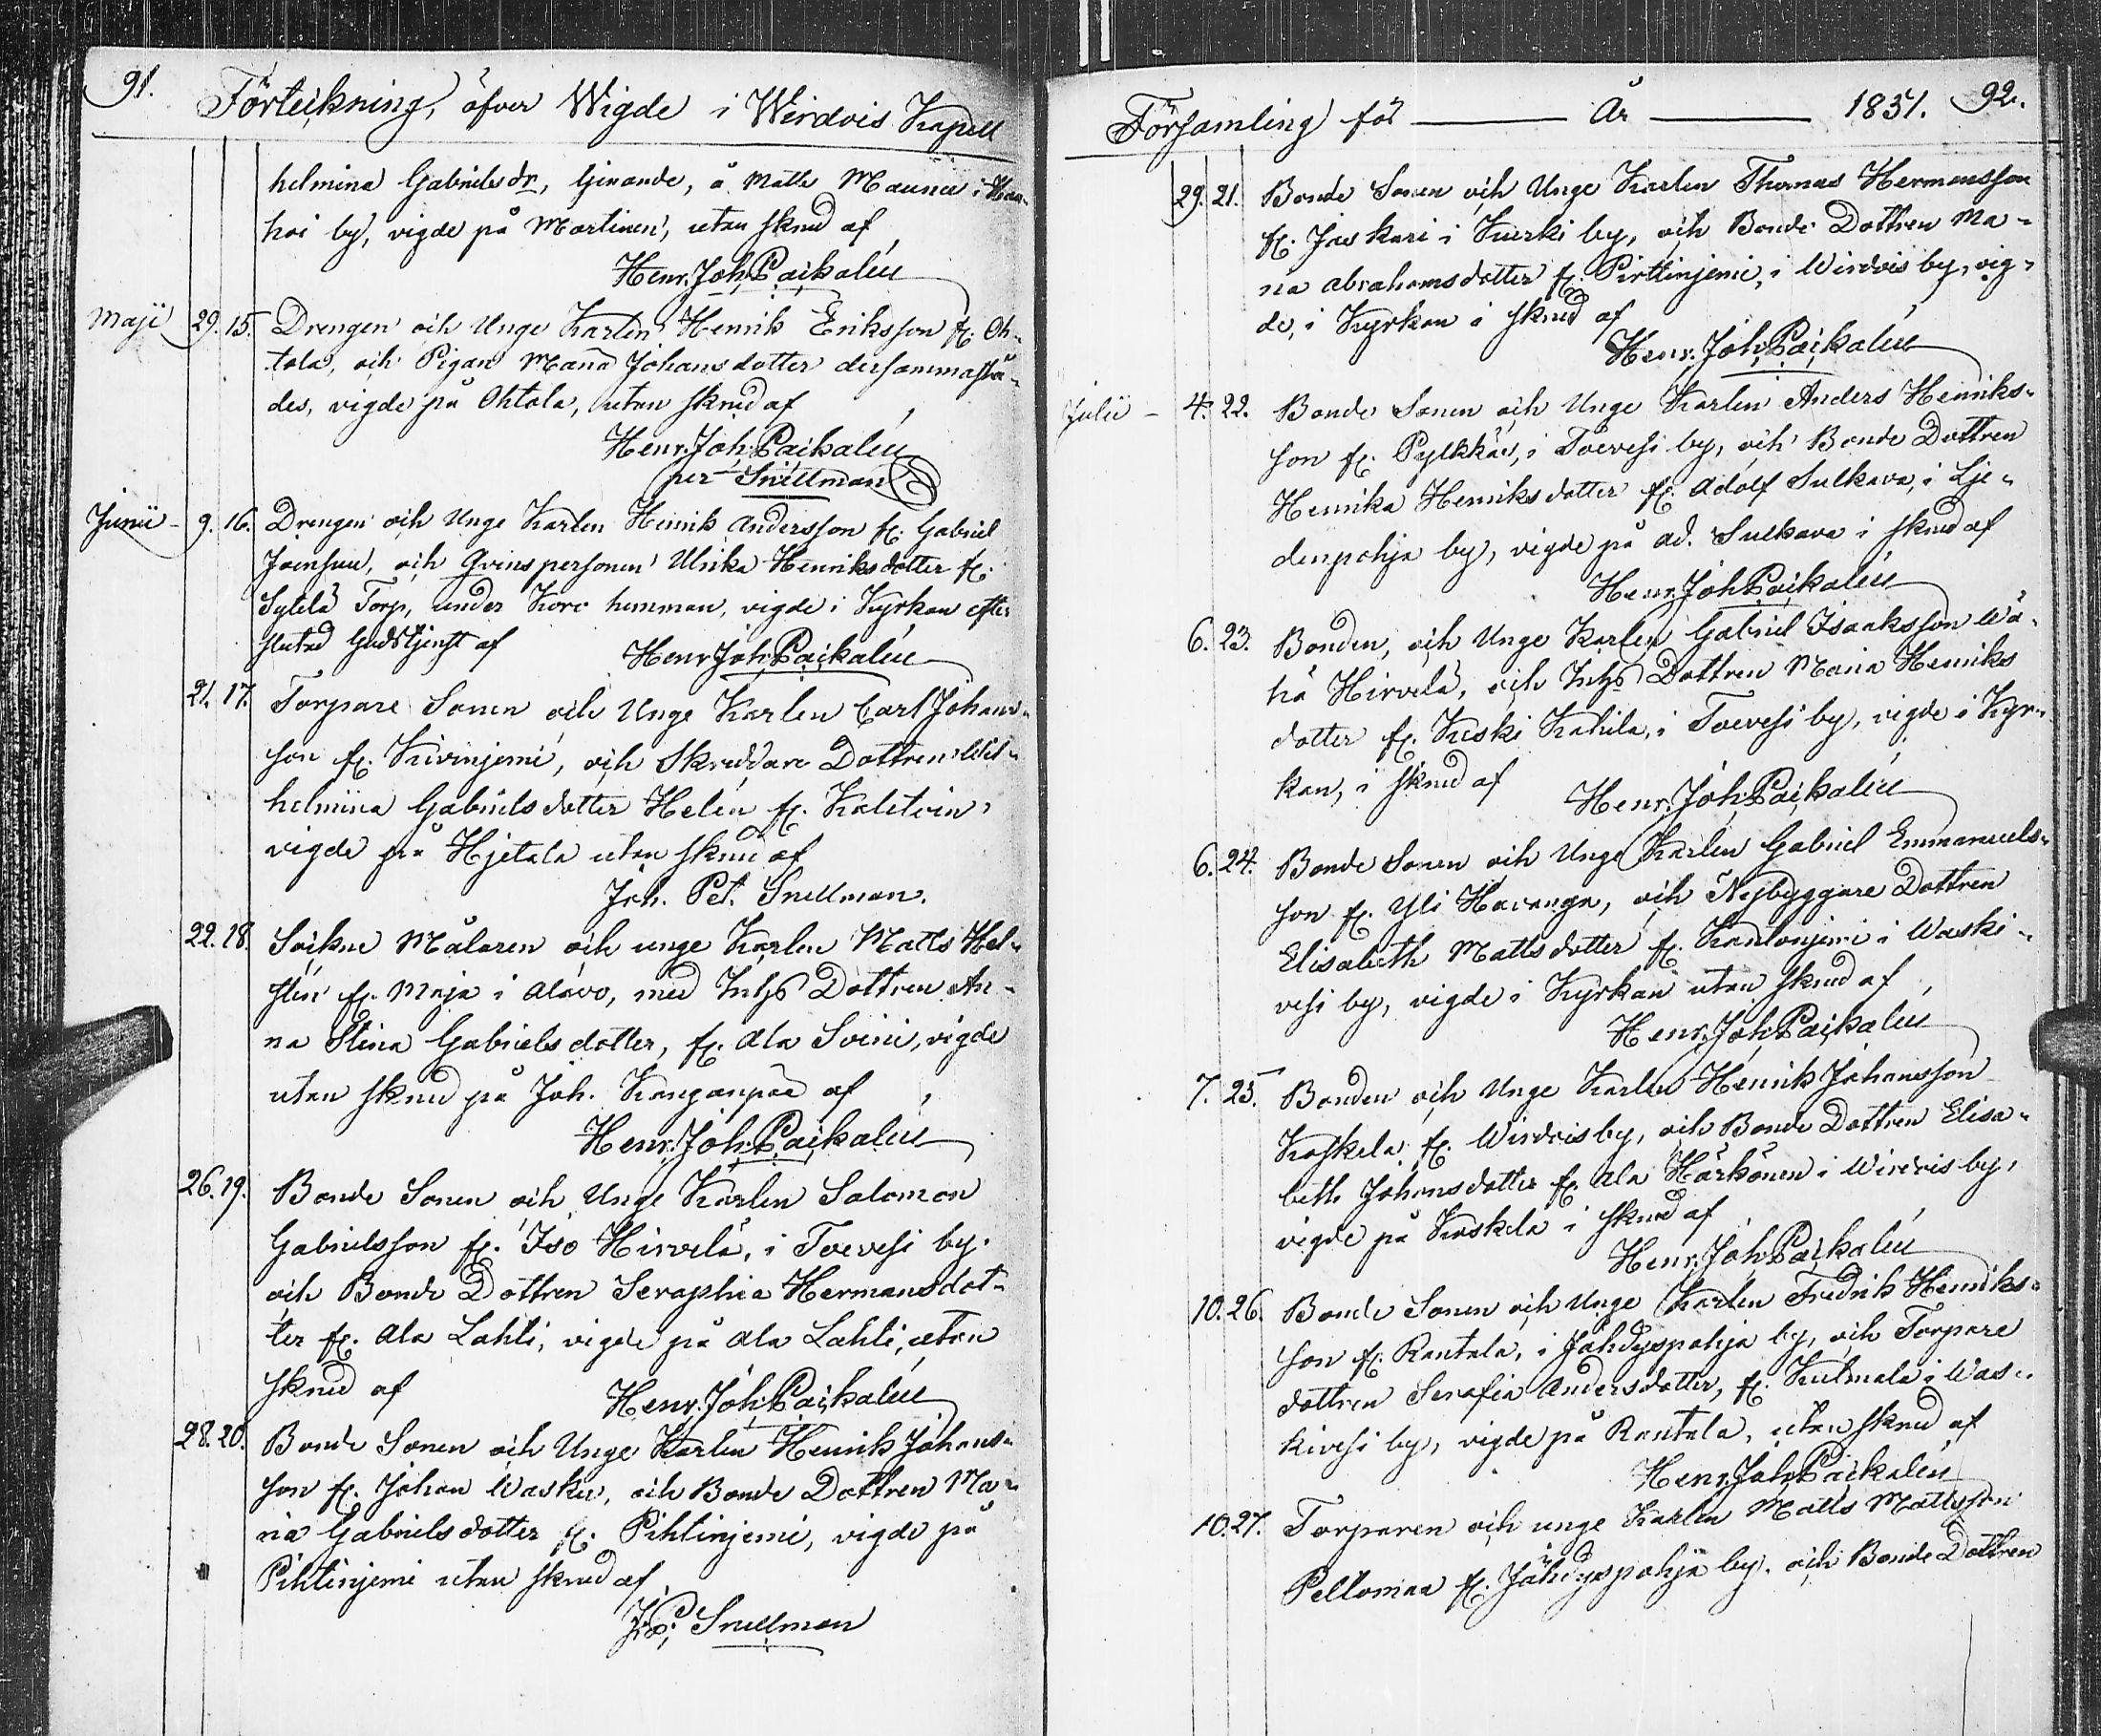 91.
Förteckning, öfver Wigde i Wirdois Kapell
helmina Gabrielsdr, Girande, å Matts Mauna i Han-
hoi by, vigde på Martinen, utan skrud af
Henr. Joh. Paikalén
Maji 29. 15. Drengen och Unge Karlen Henrik Eriksson fr. Oh-
tola, och Pigan Maria Johansdotter dersammastä-
des, vigde på Ohtola, utan skrud af
Henr. Joh. Paikalén
per Snellman
Junii - 9. 16. Drengen och Unge Karlen Henrik Andersson fr. Gabriel
Joensuu, och Qvinspersonen Ulrika Henriksdotter fr.
Sytelä Torp, under Koro hemman, vigde i Kyrkan efter
slutad Gudstjenst af Henr. Joh. Paikalén
21. 17. Torpare Sonen och Unge Karlen Carl Johans-
son fr. Kivinjemi, och Skräddare Dottren Wil-
helmina Gabrielsdotter Helén fr. Koletvin,
vigde på Hjetala utan skrud af
Joh. Pet. Snellman.
22. 18. Sockne Målaren och unge Karlen Matts Hel-
stén fr. Maja i Alavo, med Inhs Dottren An-
na Stina Gabrielsdotter, fr. Ala Soini, vigde
utan skrud på Joh. Kanganpää af
Henr. Joh. Paikalén
26. 19. Bonde Sonen och Unge Karlen Salomon
Gabrielsson fr. Iso Hirvelä, i Toevesi by.
och Bonde Dottren Seraphia Hermansdot-
ter fr. Ala Lahti, vigde på Ala Lahti, utan
skrud af Henr. Joh. Paikalén
28. 20. Bonde Sonen och Unge Karlen Henrik Johans-
son fr. Johan Wasku, och Bonde Dottren Ma-
ria Gabrielsdotter fr. Pihtinjemi, vigde på
Pihtinjemi utan skrud af
J. P. Snellman
Församling för År 1851. 92.
29. 21. Bonde Sonen och Unge Karlen Thomas Hermansson
fr. Jaskari i Kurki by, och Bonde Dottren Ma-
ria Abrahamsdotter fr. Pirttinjemi, i Wirdois by, vig-
de, i Kyrkan i skrud af
Henr. Joh. Paikalén
Julii - 4. 22. Bonde Sonen och Unge Karlen Anders Henriks-
son fr. Pylkkäs, i Toevesi by, och Bonde Dottren
Henrika Henriksdotter fr. Adolf Sulkava, i Lje-
denpohja by, vigde på Ad. Sulkava i skrud af
Henr. Joh. Paikalén
6. 23. Bonden, och Unge Karlen Gabriel Isaksson Wä-
hä Hirvelä, och Inhs Dottren Maria Henriks
dotter fr. Keski Kahila, i Toevesi by, vigde i Kyr-
kan, i skrud af Henr. Joh. Paikalén
6. 24. Bonde Sonen och Unge Karlen Gabriel Emmanuels-
son fr. Yli Havanga, och Nybyggare Dottren
Elisabeth Mattsdotter fr. Kantonjemi i Waski-
vesi by, vigde i Kyrkan utan skrud af
Henr. Joh. Paikalén
7. 25. Bonden och Unge Karlen Henrik Johansson
Koskela fr. Wirdois by, och Bonde Dottren Elisa-
beth Johansdotter fr. Ala Härkönen i Wirdois by,
vigde på Koskela i skrud af
Henr. Joh. Paikalén
10. 26. Bonde Sonen och Unge Karlen Fredrik Henriks-
son fr. Rantala, i Jähdyspohja by, och Torpare
dottren Serafia Andersdotter, fr. Kulmala i Was-
kivesi by, vigde på Rantala, utan skrud af
Henr. Joh. Paikalén
10. 27. Torparen och unge Karlen Matts Mattsson
Peltomaa fr. Jähdyspohja by. och Bonde Dottren